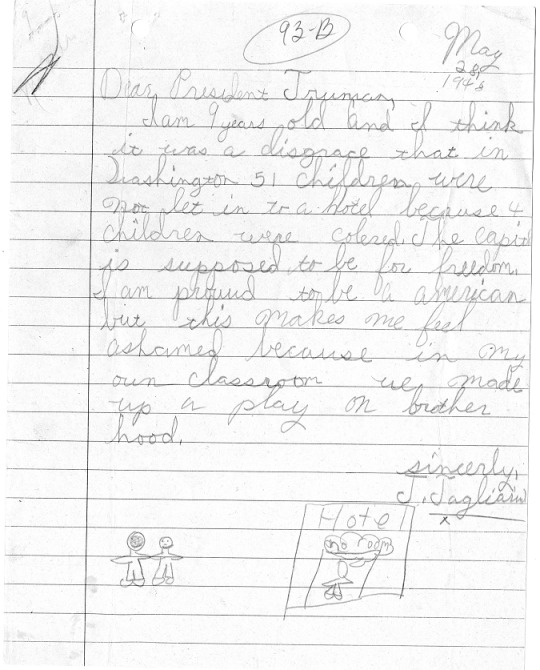 93-B
May
28,
194
Dear President Truman,
I am 9 years old and I think
it was a disgrace that in
Washington 51 children were
not let in to a hotel because 4
children were colored. The capitl
is supposed to be for freedom.
I am proud to be a american
but this makes me feel
ashamed because in my
own classroom we made
up a play on brother
hood.
sincerly,
J.
x
Hotel
no room